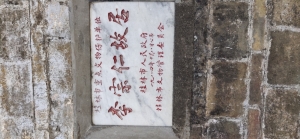 桂林市重点文物保护单位
李宗仁故居
桂林市人民政府
桂林市文物管理委员会